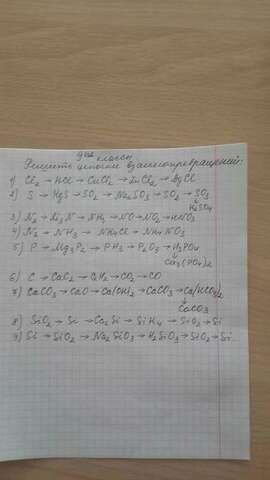 9 класс
Решить цепочки взаимопревращений:
1) Cl₂ → HCl → CuCl₂ → ZnCl₂ → AgCl
2) S → HgS → SO₂ → Na₂SO₃ → SO₂ → SO₃
↓
H₂SO₄
3) N₂ → Li₃N → NH₃ → NO → NO₂ → HNO₃
4) N₂ → NH₃ → NH₄Cl → NH₄NO₃
5) P → Mg₃P₂ → PH₃ → P₂O₅ → H₃PO₄
↓
Ca₃(PO₄)₂
6) C → CaC₂ → C₂H₂ → CO₂ → CO
7) CaCO₃ → CaO → Ca(OH)₂ → CaCO₃ → Ca(HCO₃)₂
↓
CaCO₃
8) SiO₂ → Si → Ca₂Si → SiH₄ → SiO₂ → Si
9) Si → SiO₂ → Na₂SiO₃ → H₂SiO₃ → SiO₂ → Si